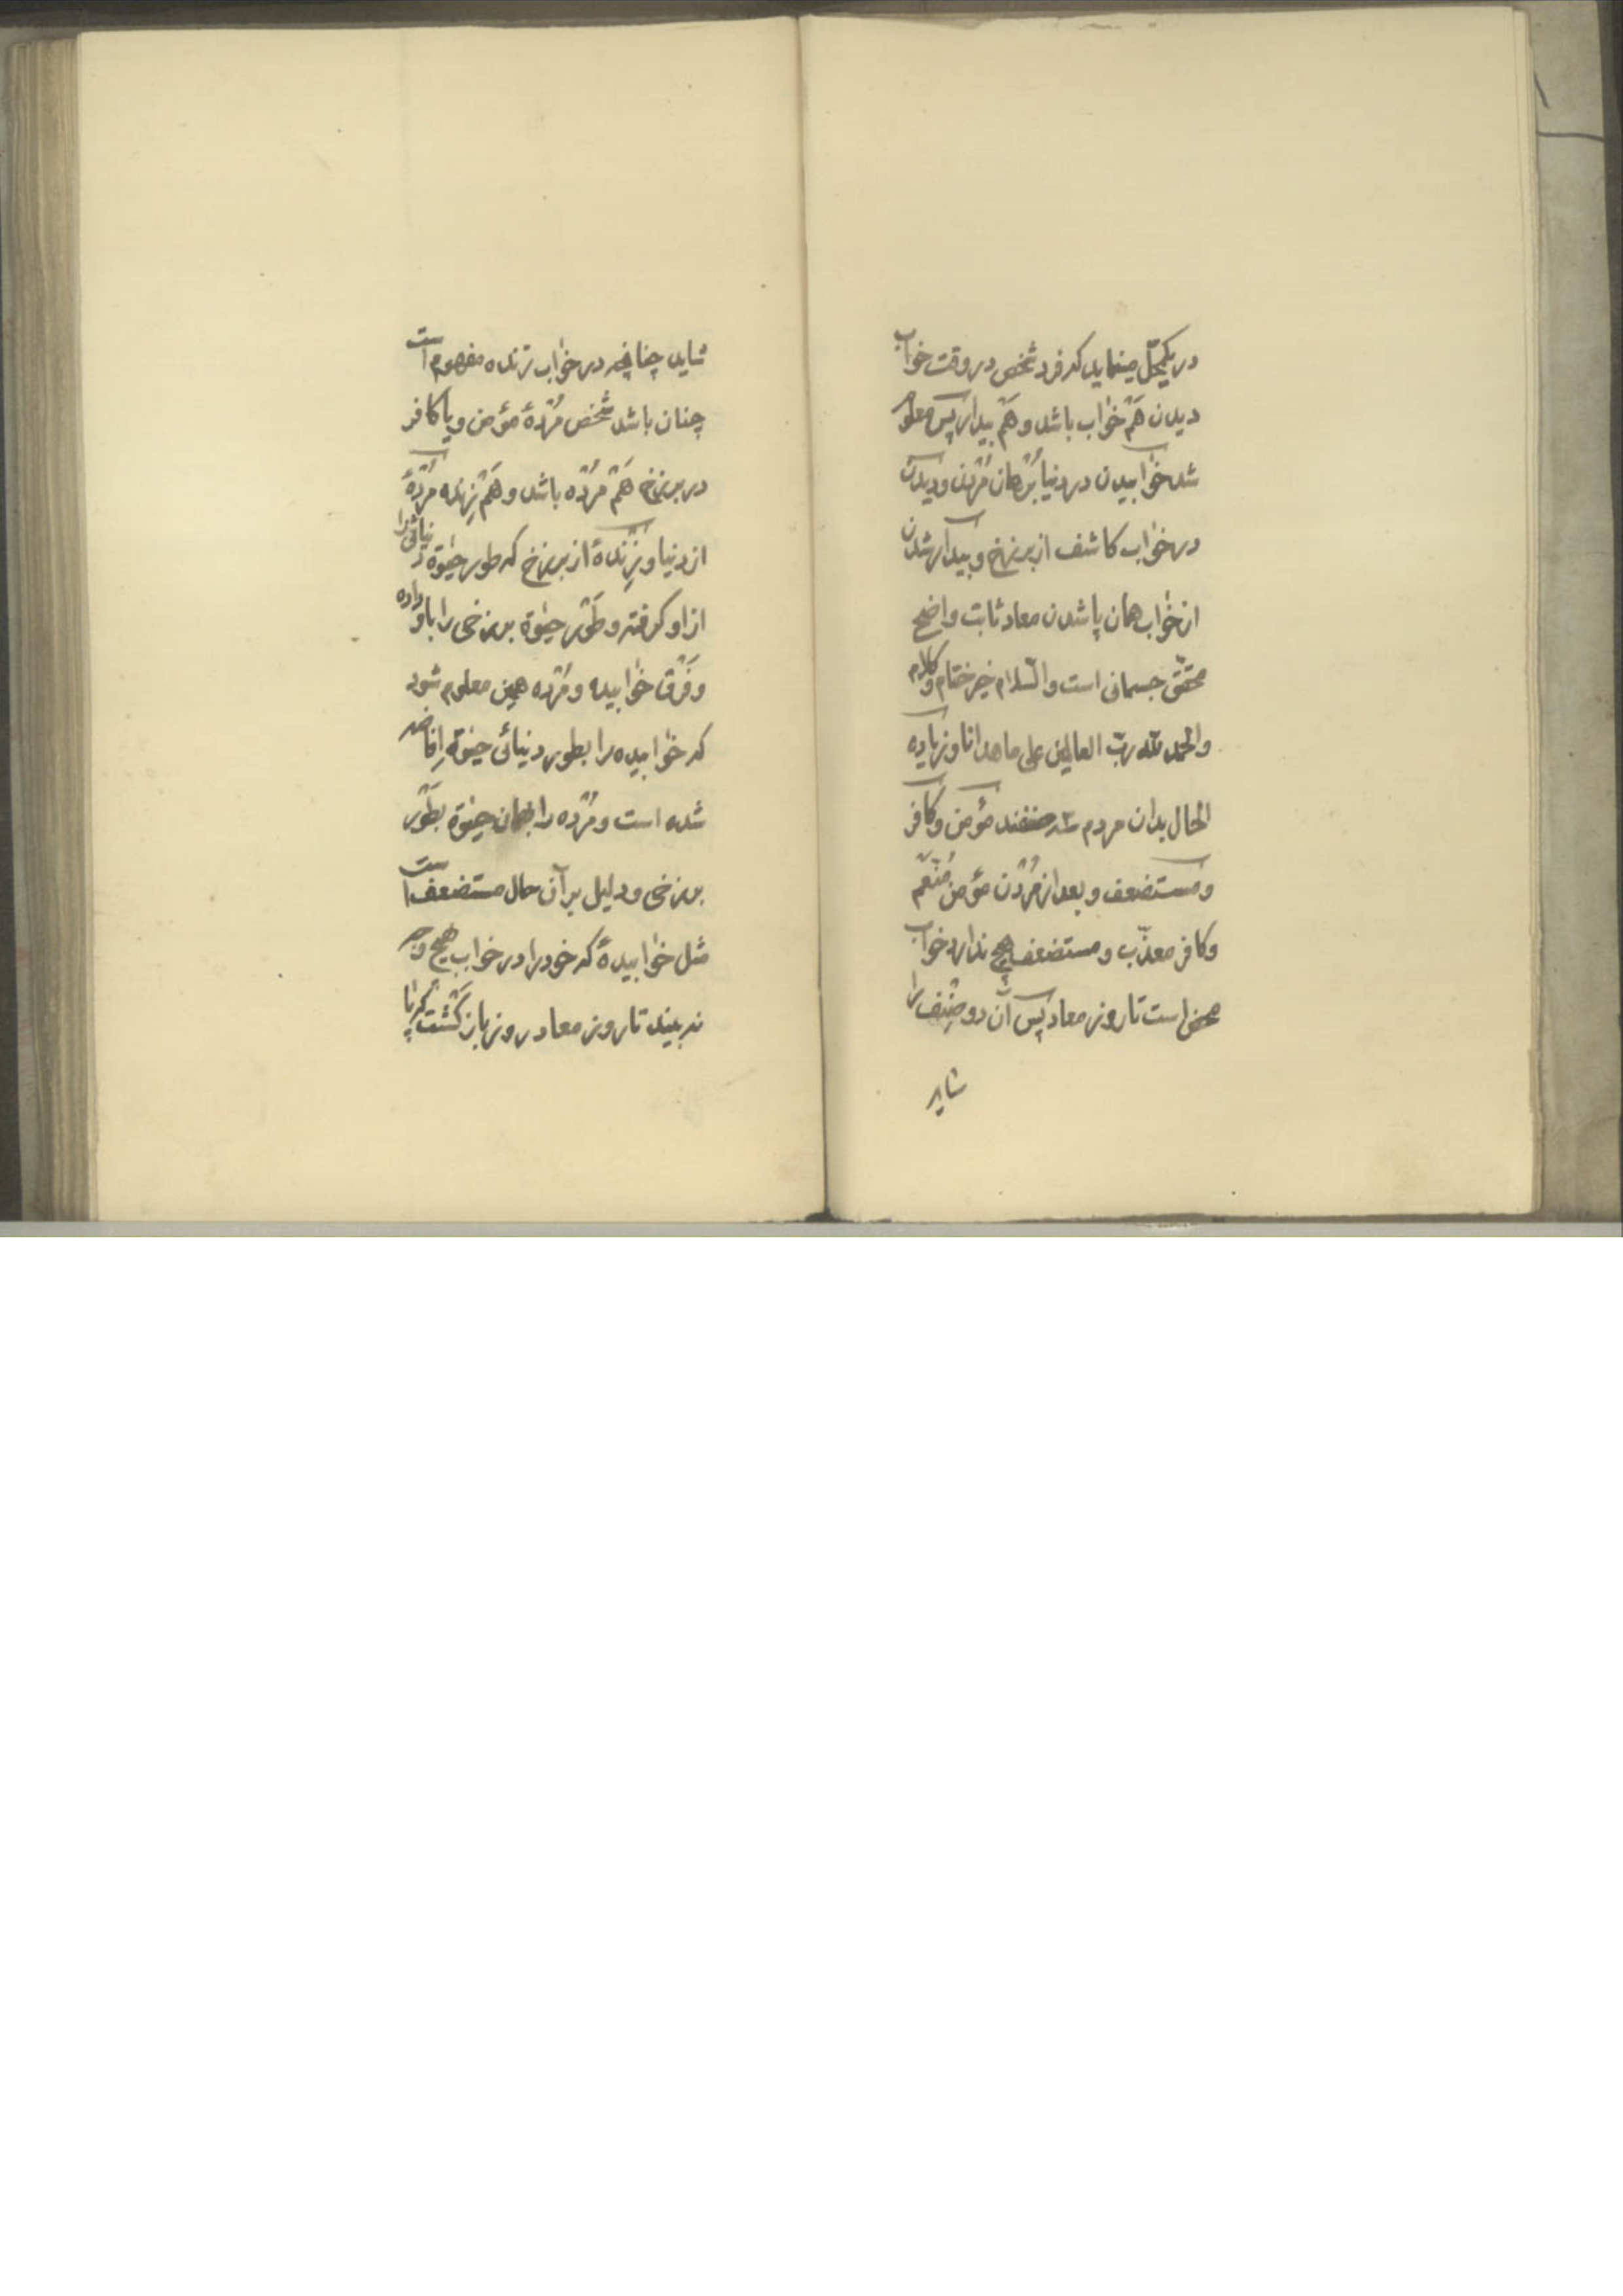 در یکمحل مینماید که فرد شخص در وقت خواب
دیدن هَمْ خوٰاب باشد و هَمْ بیدار پس معلوم
شد خوٰابیدن در دنیا بُرْهان مُرْدن و دیدن
در خوٰاب کاشف از برزخ و بیدار شدن
از خوٰاب همان پا شدن معاد ثابت واضح
محقّق جسمانی است والسّلام خیر ختام و کلام
والحمد للّه ربّ العالمین علی ما هدانا و زیاده
الحال بدان مردم سه صنفند مؤمن و کافر
و مستضعف و بعد از مُرْدن مؤمن مُنَعّم
و کافر معذّب و مستضعف هیچ ندارد خواب
محض است تا روز معاد پس آن دو صِنْف را
شاید
شاید چنانچه در خوٰاب زنده مفهوم است
چنان باشد شخص مُرْدهٔ مؤمن و یا کافر
در برزخ هَمْ مُرْده باشد و هَمْ زِنْده مُرْدهٔ
از دنیا و زِنْدهٔ از برزخ که طور حیٰوة دنیائی را
از او گرفته و طَوْر حیٰوة برزخی را باو داده
و فَرْق خوٰابیده و مُرْده همین معلوم شود
که خوٰابیده را بطور دنیائی حیٰوة اِفاضه
شده است و مُرْده را همان حیٰوة بطَوْر
برزخی و دلیل بر آن حال مستضعف است
مثل خوٰابیدهٔ که خود را در خواب هیچ وجه
نه بیند تا روز معاد روز باز گَشْت